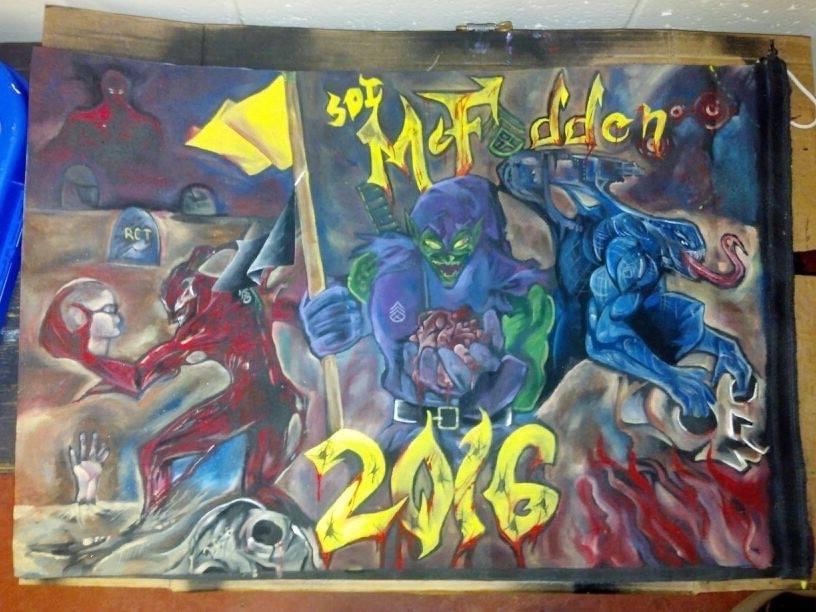 SDI
McFadden
RCT
2016